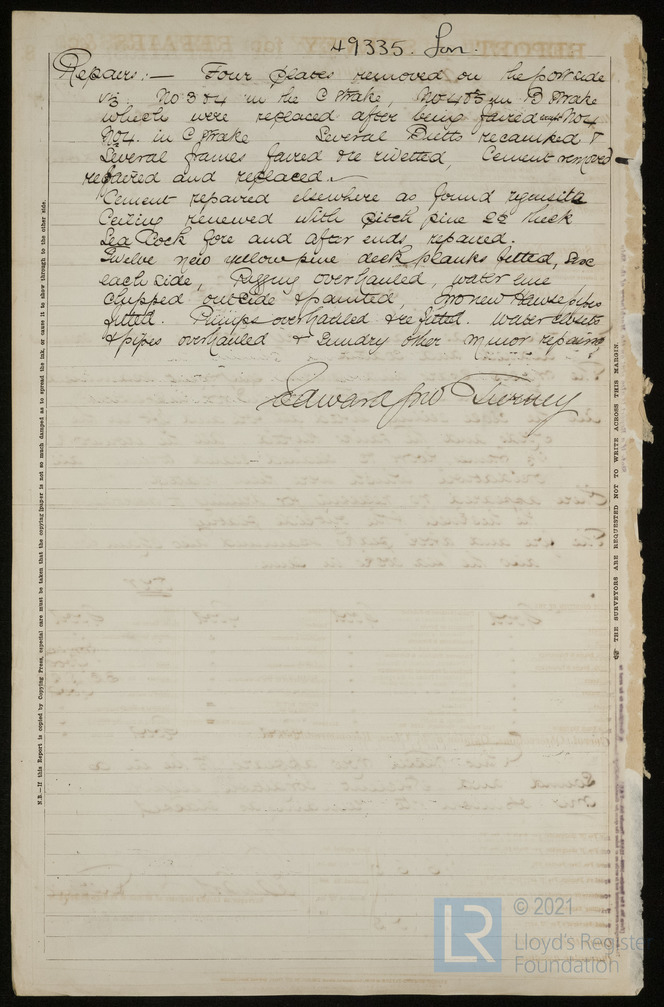 49335. Lon.
Repairs:— Four plates removed on the port side
viz No 3 & 4 in the C Strake, No 4 & 5 in B Strake
which were replaced after being faired No 4
No 4. in C Strake Several Butts recaulked &
Several frames faired & re rivetted, Cement removed
repaired and replaced.
Cement repaired elsewhere as found requisite
Ceiling renewed with pitch pine 2½ thick
fore and after ends, repaired.
Twelve new yellow pine deck planks fitted,
each side, Rigging overhauled, water line
chipped outside & painted, new Hawse pipes
fitted. Pumps overhauled & refitted. Water closets
& pipes overhauled & Sundry other minor repairs
Edward Jno Tierney
N.B.—If this Report is copied by Copying Press, especial care must be taken that the copying paper is not so much damped as to spread the ink, or cause it to show through to the other side.
THE SURVEYORS ARE REQUESTED NOT TO WRITE ACROSS THIS MARGIN.
LR
© 2021
Lloyd's Register
Foundation